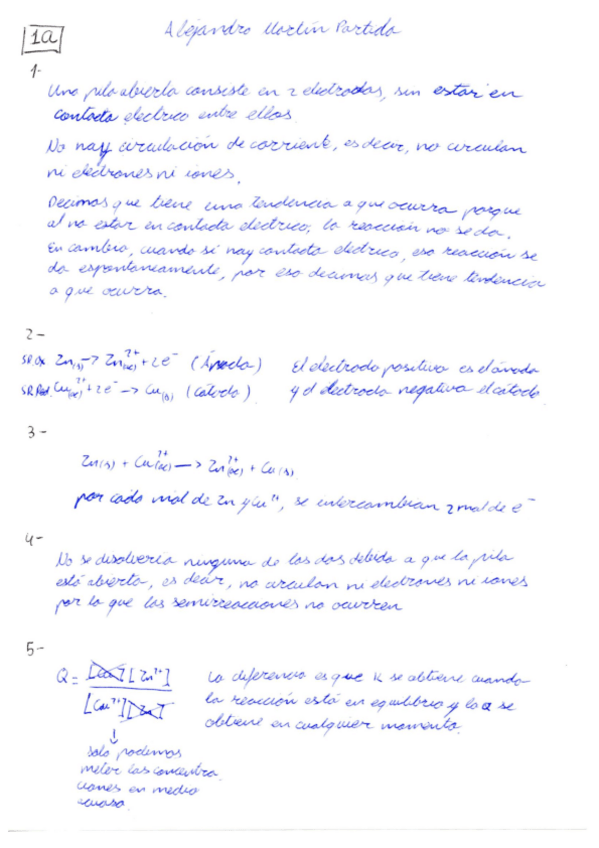 1a
Alejandro Martín Partida
1-
Una pila abierta consiste en 2 electrodos, sin estar en
contacto electrico entre ellos.
No hay circulación de corriente, es decir, no circulan
ni electrones ni iones.
Decimos que tiene una tendencia a que ocurra porque
al no estar en contacto electrico, la reacción no se da.
En cambio, cuando si hay contacto electrico, esa reacción se
da espontaneamente, por eso decimos que tiene tendencia
a que ocurra.
2-
S.R.Ox Zn(s) → Zn²⁺(ac) + 2e⁻ (Ánodo) El electrodo positivo es el ánodo
S.R.Red. Cu²⁺(ac) + 2e⁻ → Cu(s) (Cátodo) y el electrodo negativo el cátodo
3-
Zn(s) + Cu²⁺(ac) → Zn²⁺(ac) + Cu(s)
por cada mol de Zn y Cu²⁺, se intercambian 2 mol de e⁻
4-
No se disolvería ninguna de las dos debido a que la pila
está abierta, es decir, no circulan ni electrones ni iones
por lo que las semirreacciones no ocurren
5-
Q = [Cu][Zn²⁺] / [Cu²⁺][Zn]
La diferencia es que K se obtiene cuando
la reacción está en equilibrio y la Q se
obtiene en cualquier momento.
↓
solo podemos
meter las concentra
ciones en medio
acuoso.